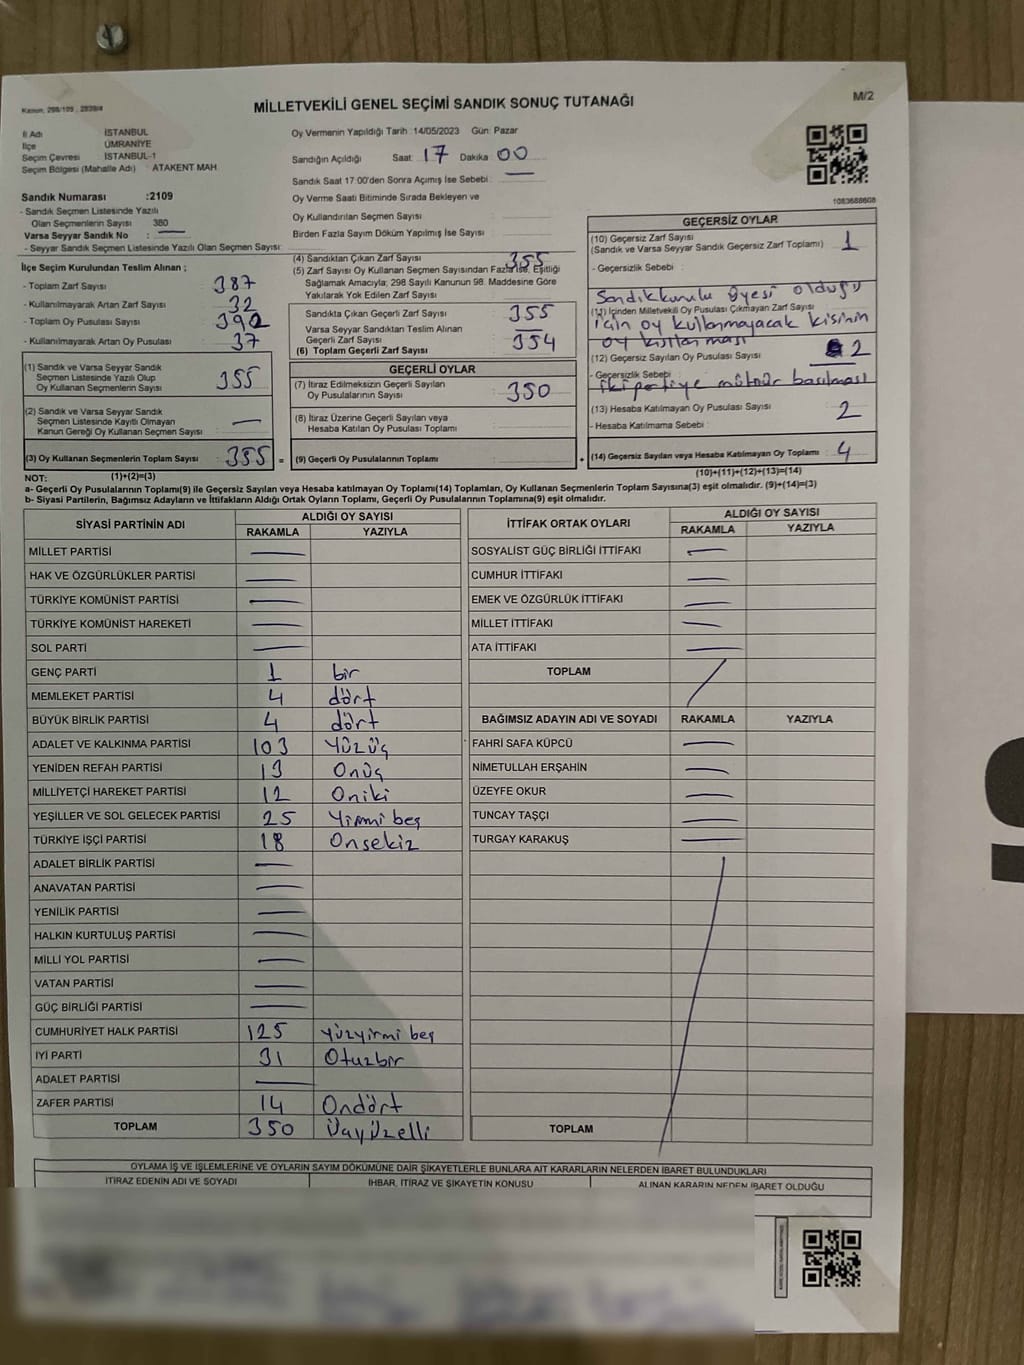 Kanun, 298/105 , 2839/4
MİLLETVEKİLİ GENEL SEÇİMİ SANDIK SONUÇ TUTANAĞI
M/2
İl Adı İSTANBUL
İlçe ÜMRANİYE
Seçim Çevresi İSTANBUL-1
Seçim Bölgesi (Mahalle Adı) ATAKENT MAH.
Oy Vermenin Yapıldığı Tarih :14/05/2023 Gün: Pazar
Sandığın Açıldığı Saat: 17 Dakika: 00
Sandık Saat 17:00'den Sonra Açımış İse Sebebi :
Oy Verme Saati Bitiminde Sırada Bekleyen ve
Oy Kullandırılan Seçmen Sayısı :
Birden Fazla Sayım Döküm Yapılmış İse Sayısı :
1083688608
Sandık Numarası :2109
- Sandık Seçmen Listesinde Yazılı
Olan Seçmenlerin Sayısı 380
Varsa Seyyar Sandık No :
- Seyyar Sandık Seçmen Listesinde Yazılı Olan Seçmen Sayısı:
İlçe Seçim Kurulundan Teslim Alınan ;
- Toplam Zarf Sayısı : 387
- Kullanılmayarak Artan Zarf Sayısı : 32
- Toplam Oy Pusulası Sayısı : 392
- Kullanılmayarak Artan Oy Pusulası : 37
(1) Sandık ve Varsa Seyyar Sandık
Seçmen Listesinde Yazılı Olup
Oy Kullanan Seçmenlerin Sayısı : 355
(2) Sandık ve Varsa Seyyar Sandık
Seçmen Listesinde Kayıtlı Olmayan
Kanun Gereği Oy Kullanan Seçmen Sayısı : —
(3) Oy Kullanan Seçmenlerin Toplam Sayısı : 355 =
(4) Sandıktan Çıkan Zarf Sayısı : 355
(5) Zarf Sayısı Oy Kullanan Seçmen Sayısından Fazla İse, Eşitliği
Sağlamak Amacıyla; 298 Sayılı Kanunun 98. Maddesine Göre
Yakılarak Yok Edilen Zarf Sayısı :
Sandıkta Çıkan Geçerli Zarf Sayısı : 355
Varsa Seyyar Sandıktan Teslim Alınan
Geçerli Zarf Sayısı : —
(6) Toplam Geçerli Zarf Sayısı : 354
GEÇERLİ OYLAR
(7) İtiraz Edilmeksizin Geçerli Sayılan
Oy Pusulalarının Sayısı : 350
(8) İtiraz Üzerine Geçerli Sayılan veya
Hesaba Katılan Oy Pusulası Toplamı :
(9) Geçerli Oy Pusulalarının Toplamı : +
GEÇERSİZ OYLAR
(10) Geçersiz Zarf Sayısı
(Sandık ve Varsa Seyyar Sandık Geçersiz Zarf Toplamı) : 1
- Geçersizlik Sebebi :
Sandık kurulu üyesi olduğu
(11) İçinden Milletvekili Oy Pusulası Çıkmayan Zarf Sayısı
için oy kullanmayacak kişinin
oy kullanması
(12) Geçersiz Sayılan Oy Pusulası Sayısı : 2
- Geçersizlik Sebebi :
iki partiye mühür basılması
(13) Hesaba Katılmayan Oy Pusulası Sayısı : 2
- Hesaba Katılmama Sebebi :
(14) Geçersiz Sayılan veya Hesaba Katılmayan Oy Toplamı : 4
NOT: (1)+(2)=(3) (10)+(11)+(12)+(13)=(14)
a- Geçerli Oy Pusulalarının Toplamı(9) ile Geçersiz Sayılan veya Hesaba katılmayan Oy Toplamı(14) Toplamları, Oy Kullanan Seçmenlerin Toplam Sayısına(3) eşit olmalıdır. (9)+(14)=(3)
b- Siyasi Partilerin, Bağımsız Adayların ve İttifakların Aldığı Ortak Oyların Toplamı, Geçerli Oy Pusulalarının Toplamına(9) eşit olmalıdır.
SİYASİ PARTİNİN ADI ALDIĞI OY SAYISI
RAKAMLA YAZIYLA
MİLLET PARTİSİ —
HAK VE ÖZGÜRLÜKLER PARTİSİ —
TÜRKİYE KOMÜNİST PARTİSİ —
TÜRKİYE KOMÜNİST HAREKETİ —
SOL PARTİ —
GENÇ PARTİ 1 bir
MEMLEKET PARTİSİ 4 dört
BÜYÜK BİRLİK PARTİSİ 4 dört
ADALET VE KALKINMA PARTİSİ 103 Yüzüç
YENİDEN REFAH PARTİSİ 13 Onüç
MİLLİYETÇİ HAREKET PARTİSİ 12 Oniki
YEŞİLLER VE SOL GELECEK PARTİSİ 25 Yirmi beş
TÜRKİYE İŞÇİ PARTİSİ 18 Onsekiz
ADALET BİRLİK PARTİSİ —
ANAVATAN PARTİSİ —
YENİLİK PARTİSİ —
HALKIN KURTULUŞ PARTİSİ —
MİLLİ YOL PARTİSİ —
VATAN PARTİSİ —
GÜÇ BİRLİĞİ PARTİSİ —
CUMHURİYET HALK PARTİSİ 125 Yüzyirmi beş
İYİ PARTİ 31 Otuzbir
ADALET PARTİSİ —
ZAFER PARTİSİ 14 Ondört
TOPLAM 350 Üçyüzelli
İTTİFAK ORTAK OYLARI ALDIĞI OY SAYISI
RAKAMLA YAZIYLA
SOSYALİST GÜÇ BİRLİĞİ İTTİFAKI —
CUMHUR İTTİFAKI —
EMEK VE ÖZGÜRLÜK İTTİFAKI —
MİLLET İTTİFAKI —
ATA İTTİFAKI —
TOPLAM
BAĞIMSIZ ADAYIN ADI VE SOYADI RAKAMLA YAZIYLA
FAHRİ SAFA KÜPCÜ —
NİMETULLAH ERŞAHİN —
ÜZEYFE OKUR —
TUNCAY TAŞÇI —
TURGAY KARAKUŞ —
TOPLAM
OYLAMA İŞ VE İŞLEMLERİNE VE OYLARIN SAYIM DÖKÜMÜNE DAİR ŞİKAYETLERLE BUNLARA AİT KARARLARIN NELERDEN İBARET BULUNDUKLARI
İTİRAZ EDENİN ADI VE SOYADI İHBAR, İTİRAZ VE ŞİKAYETİN KONUSU ALINAN KARARIN NEDEN İBARET OLDUĞU